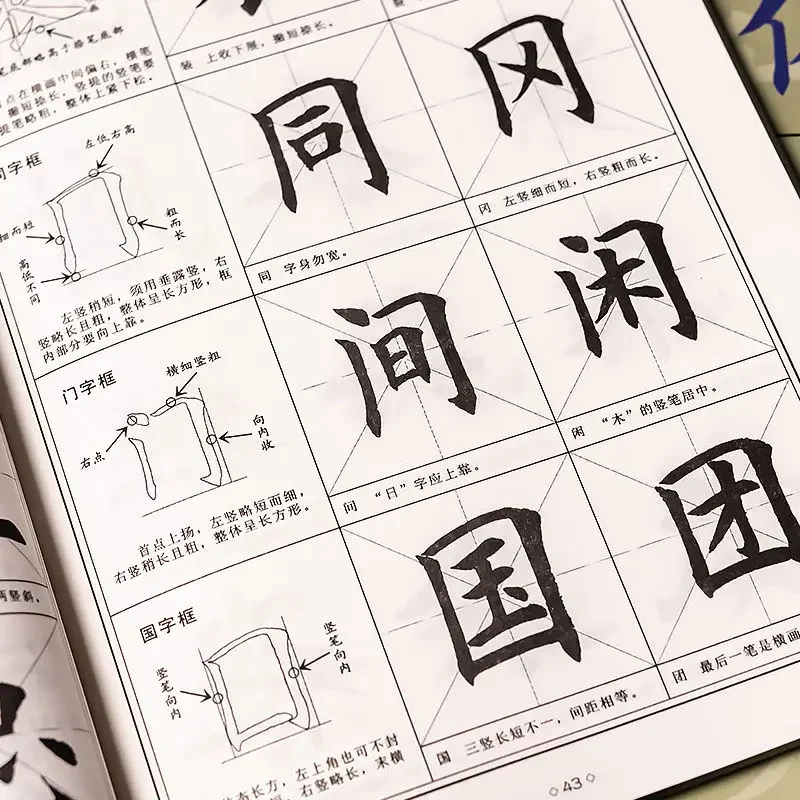 笔底部略高于捺笔底部
点在横画中间偏右，横笔
撇短捺长，竖提的竖笔要
提笔略粗，整体上紧下松。
装 上收下展，撇短捺长。
同字框
左低右高
细而短
粗而长
高低不同
左竖稍短，须用垂露竖，右
竖略长且粗，整体呈长方形，框
内部分要向上靠。
同
同 字身勿宽。
冈
冈 左竖细而短，右竖粗而长。
门字框
横细竖粗
右点
向内收
首点上扬，左竖略短而细，
右竖稍长且粗，整体呈长方形。
间
间 “日”字应上靠。
闲
闲 “木”的竖笔居中。
国字框
竖笔向内
竖笔向内
态长方，左上角也可不封
右竖略长，末横
国
国 三竖长短不一，间距相等。
团
团 最后一笔是横画
两竖斜。
43